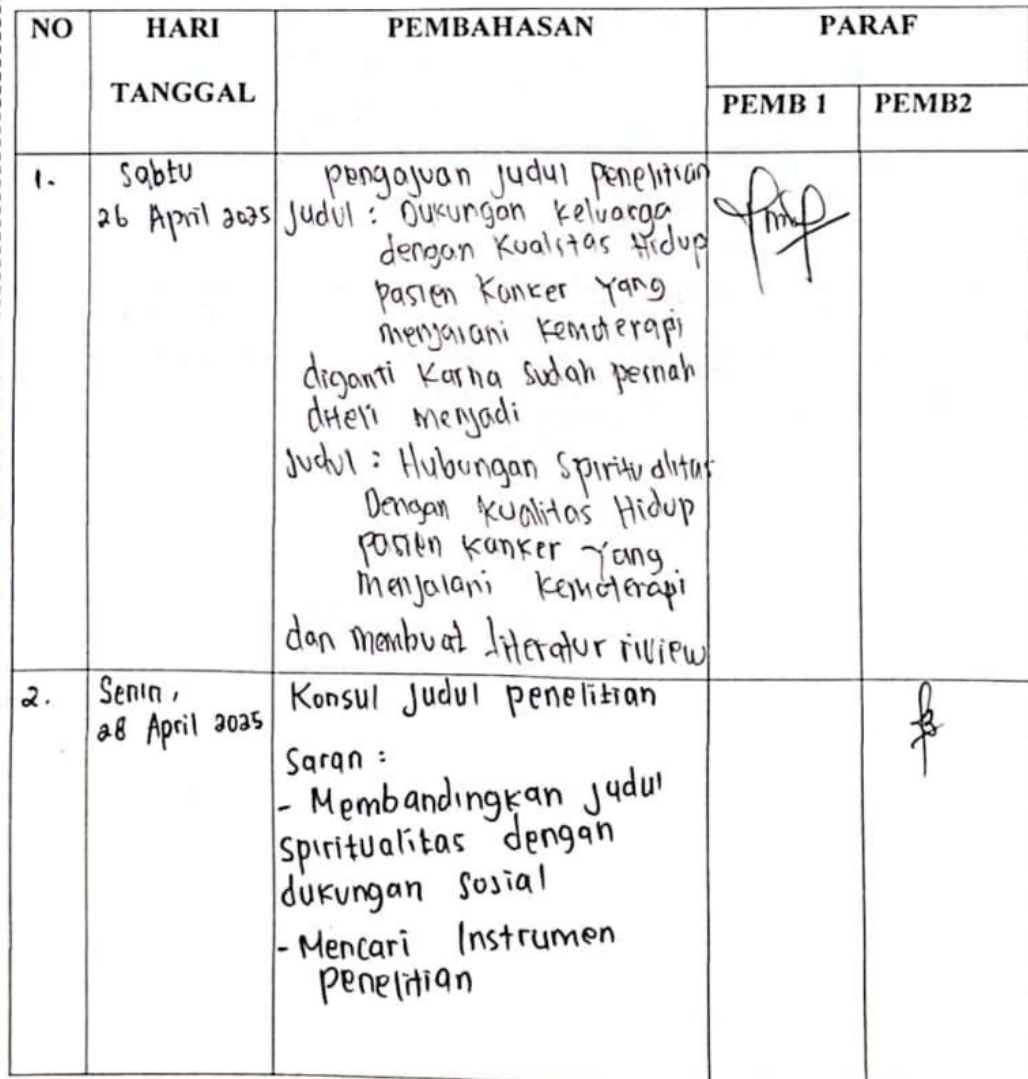 NO HARI PEMBAHASAN PARAF
TANGGAL
PEMB 1 PEMB2
1. Sabtu pengajuan judul penelitian
26 April 2025 Judul : Dukungan keluarga
dengan Kualitas Hidup
pasien Kanker Yang
menjalani kemoterapi
diganti Karna sudah pernah
diteli menjadi
Judul : Hubungan Spiritualitas
Dengan kualitas Hidup
pasien kanker Yang
Menjalani kemoterapi
dan membuat literatur riview
2. Senin, Konsul Judul penelitian
28 April 2025
Saran :
- Membandingkan Judul
spiritualitas dengan
dukungan sosial
- Mencari Instrumen
penelitian